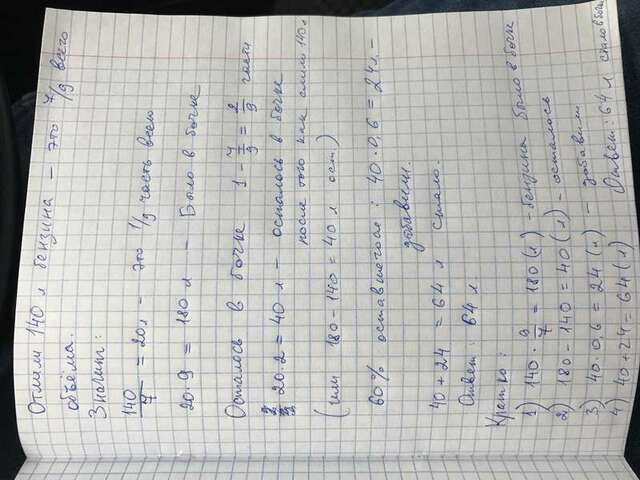 Отлили 140 л бензина – это 7/9 всего
объёма.
Значит:
140/7 = 20 л – это 1/9 часть всего
20·9 = 180 л – Было в бочке
Осталось в бочке 1 - 7/9 = 2/9 части
20·2 = 40 л – осталось в бочке
после того как слили 140 л
(или 180 - 140 = 40 л ост.)
60% оставшегося: 40·0,6 = 24 л –
добавили.
40 + 24 = 64 л стало.
Ответ: 64 л
Кратко:
1) 140 · 9/7 = 180 (л) – бензина было в бочке
2) 180 - 140 = 40 (л) – осталось
3) 40·0,6 = 24 (л) – добавили
4) 40+24 = 64 (л) Ответ: 64 л стало в бочке